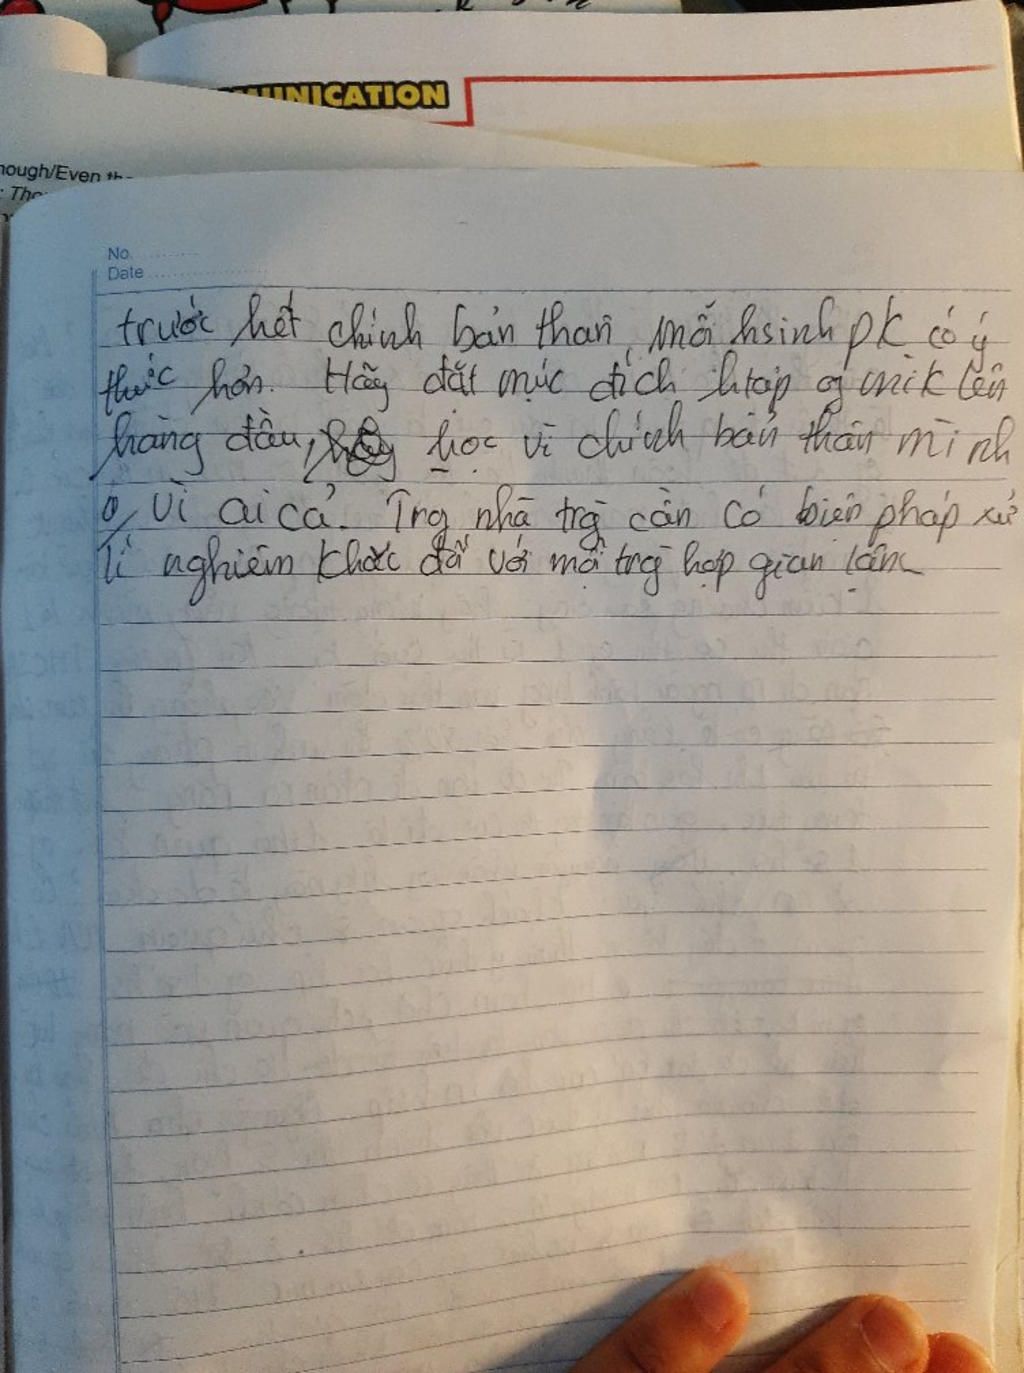 MUNICATION
hough/Even th
: Tho
No
Date
trước hết chính bản thân, mỗi hsinh pk có ý
thức hơn. Hãy đặt mục đích htập of mik lên
hàng đầu, học vì chính bản thân mình
o/ vì ai cả. Trg nhà trg cần có biện pháp xử
lí nghiêm khắc đối với mỗi trg hợp gian lận